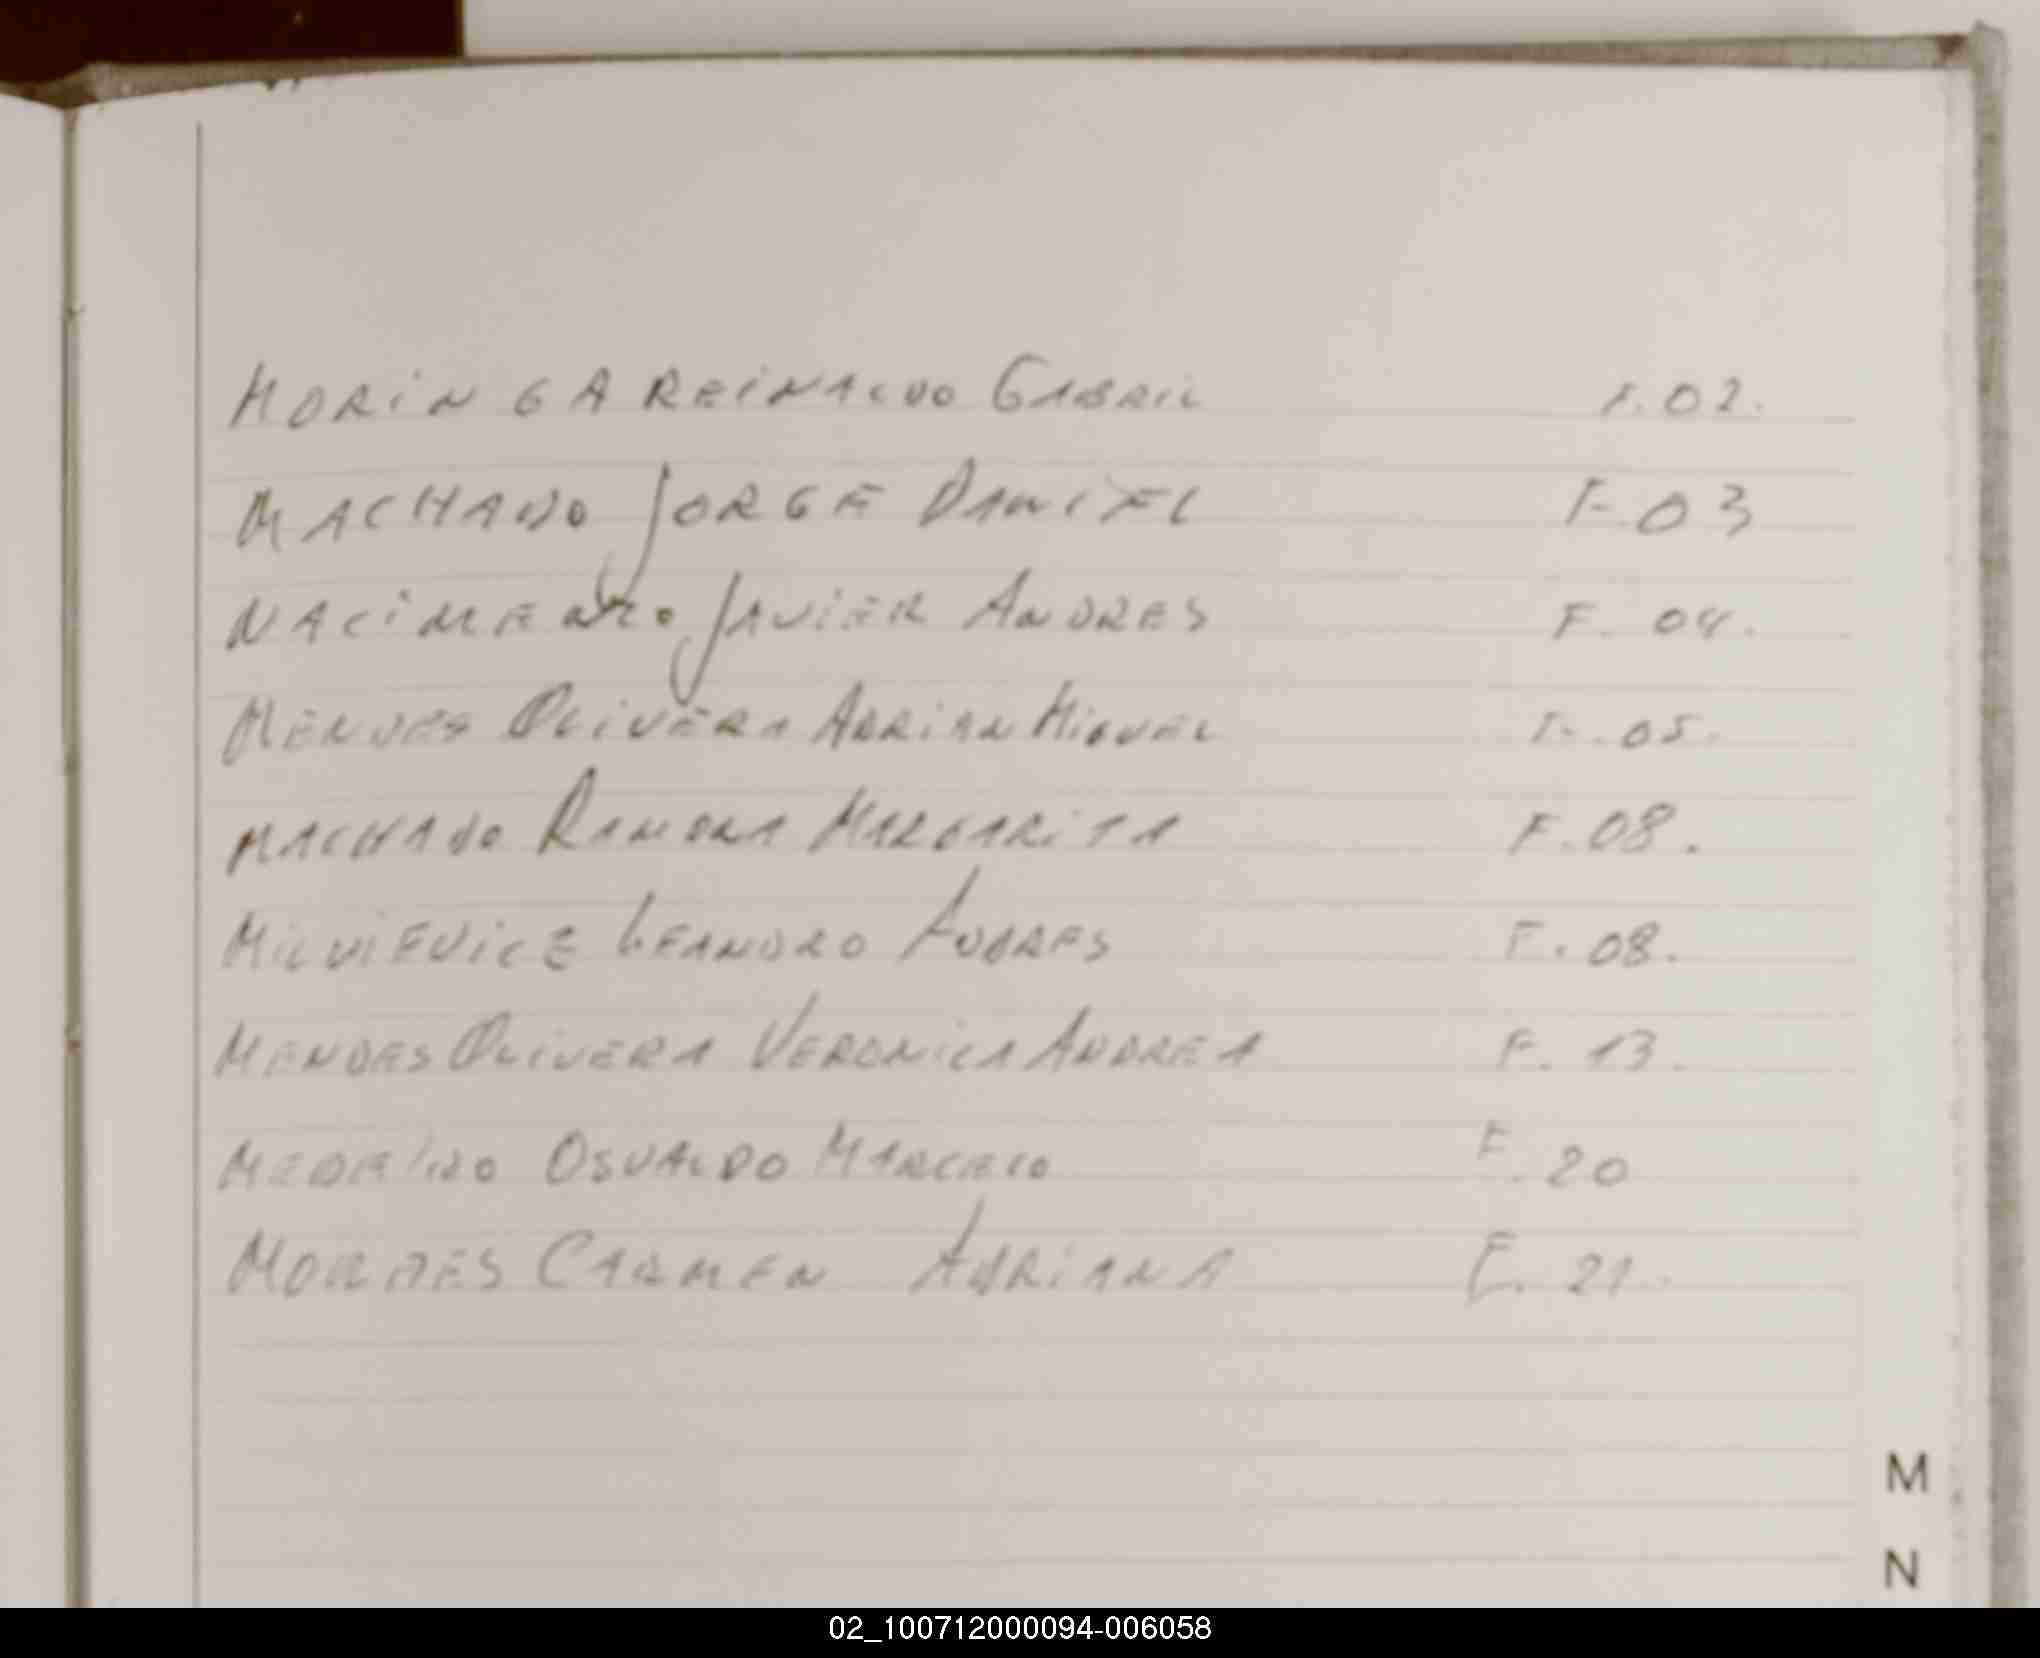 MORINGA REINALDO GABRIL F. 02.
MACHADO JORGE DANIEL F. 03
NACIMENTO JAVIER ANDRES F. 04.
MENDES OLIVERA ADRIAN MIGUEL F. 05.
MACHADO RAMONA MARGARITA F. 08.
LEANDRO ANDRES F. 08.
MENDES OLIVERA VERONICA ANDREA F. 13.
OSVALDO MARCELO F. 20
MORAES CARMEN ADRIANA F. 21.
M
N
02_100712000094-006058